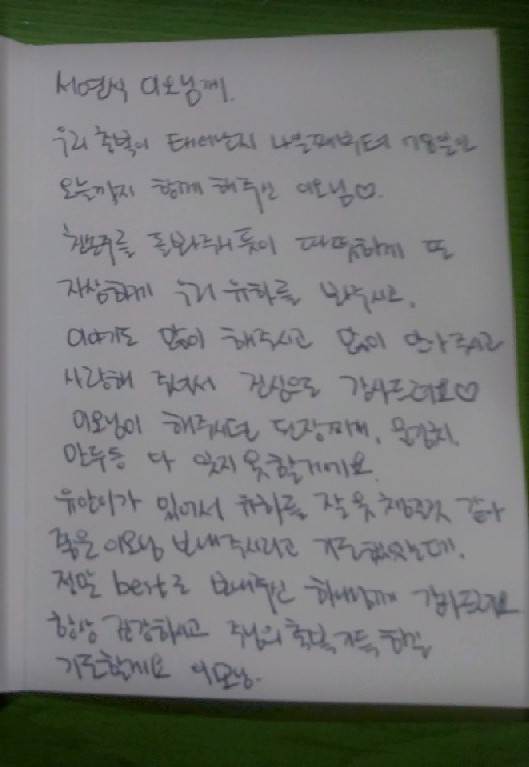 서연식 이모님께.
우리 축복이 태어난지 나흘째부터 78일인
오늘까지 함께 해주신 이모님♡.
친손주를 돌봐주시듯이 따뜻하게 또
자상하게 우리 유하를 봐주시고,
이야기도 많이 해주시고 많이 안아주시고
사랑해 주셔서 진심으로 감사드려요♡
이모님이 해주시던 된장찌개, 물김치,
만두등 다 잊지 못할거에요.
유안이가 있어서 유하를 잘 못 챙길것 같아
좋은 이모님 보내주시라고 기도했었는데,
정말 best로 보내주신 하나님께 감사드려요
항상 건강하시고 주님의 축복 가득하길
기도할게요 이모님.